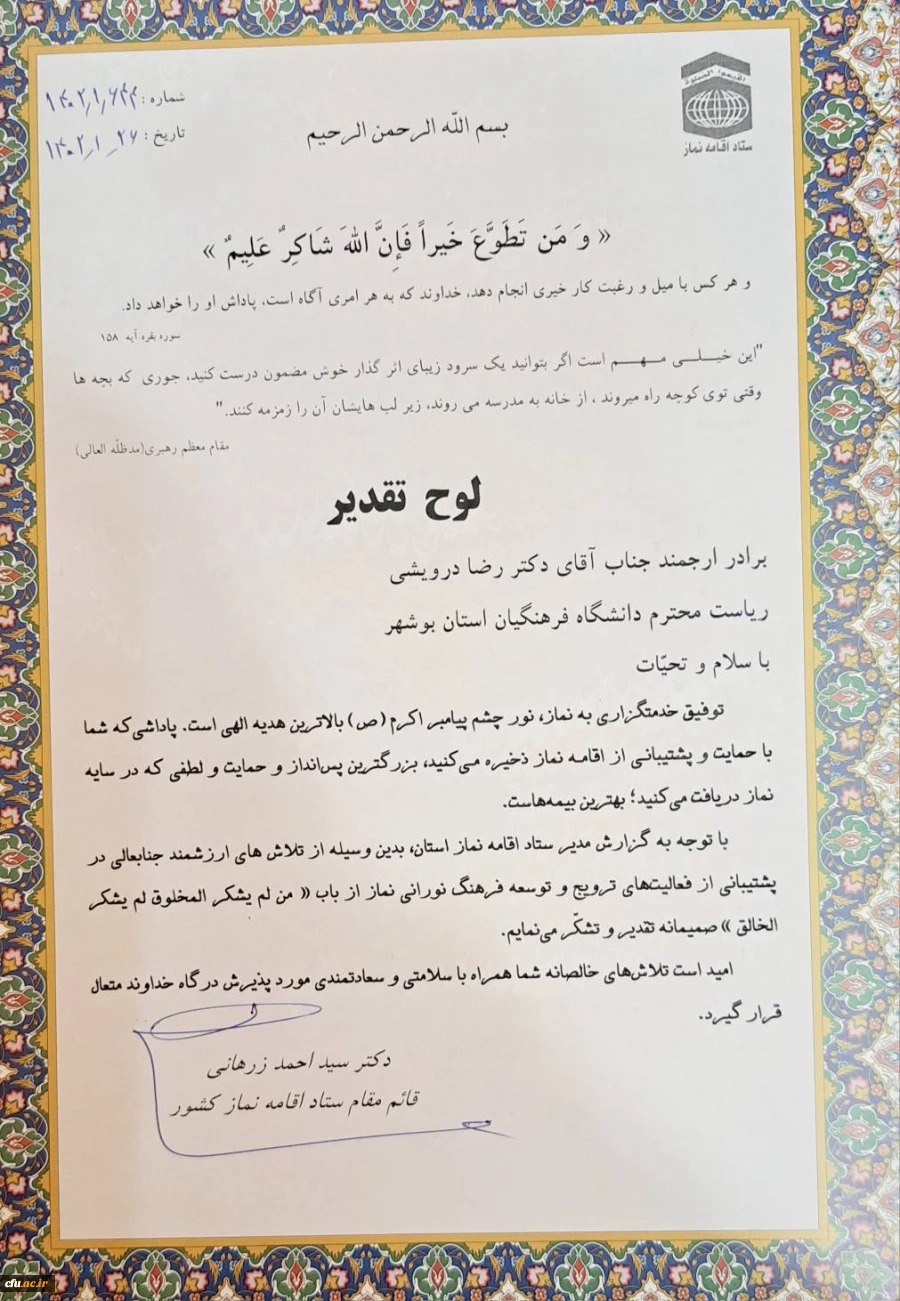 اقیموا الصلوة
ستاد اقامه نماز
شماره : ۱۴۰۲/۱/۶۴۴
تاریخ : ۱۴۰۲_۱_۲۶
بسم اللّه الرحمن الرحیم
« وَ مَن تَطَوَّعَ خَیراً فَإِنَّ اللهَ شَاکِرٌ عَلِیمٌ »
و هر کس با میل و رغبت کار خیری انجام دهد، خداوند که به هر امری آگاه است، پاداش او را خواهد داد.
سوره بقره آیه ۱۵۸
"این خیلی مهم است اگر بتوانید یک سرود زیبای اثر گذار خوش مضمون درست کنید، جوری که بچه ها
وقتی توی کوچه راه میروند ، از خانه به مدرسه می روند، زیر لب هایشان آن را زمزمه کنند."
مقام معظم رهبری(مدظلّه العالی)
لوح تقدیر
برادر ارجمند جناب آقای دکتر رضا درویشی
ریاست محترم دانشگاه فرهنگیان استان بوشهر
با سلام و تحیّات
توفیق خدمتگزاری به نماز، نور چشم پیامبر اکرم (ص) بالاترین هدیه الهی است. پاداشی که شما
با حمایت و پشتیبانی از اقامه نماز ذخیره می‌کنید، بزرگترین پس‌انداز و حمایت و لطفی که در سایه
نماز دریافت می‌کنید؛ بهترین بیمه‌هاست.
با توجه به گزارش مدیر ستاد اقامه نماز استان، بدین وسیله از تلاش های ارزشمند جنابعالی در
پشتیبانی از فعالیت‌های ترویج و توسعه فرهنگ نورانی نماز از باب « من لم یشکر المخلوق لم یشکر
الخالق » صمیمانه تقدیر و تشکّر می‌نمایم.
امید است تلاش‌های خالصانه شما همراه با سلامتی و سعادتمندی مورد پذیرش درگاه خداوند متعال
قرار گیرد.
دکتر سید احمد زرهانی
قائم مقام ستاد اقامه نماز کشور
cfu.ac.ir